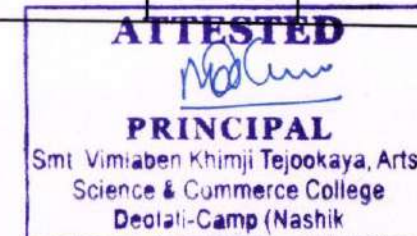 ATTESTED
PRINCIPAL
Smt Vimlaben Khimji Tejookaya, Arts
Science & Commerce College
Deolali-Camp (Nashik